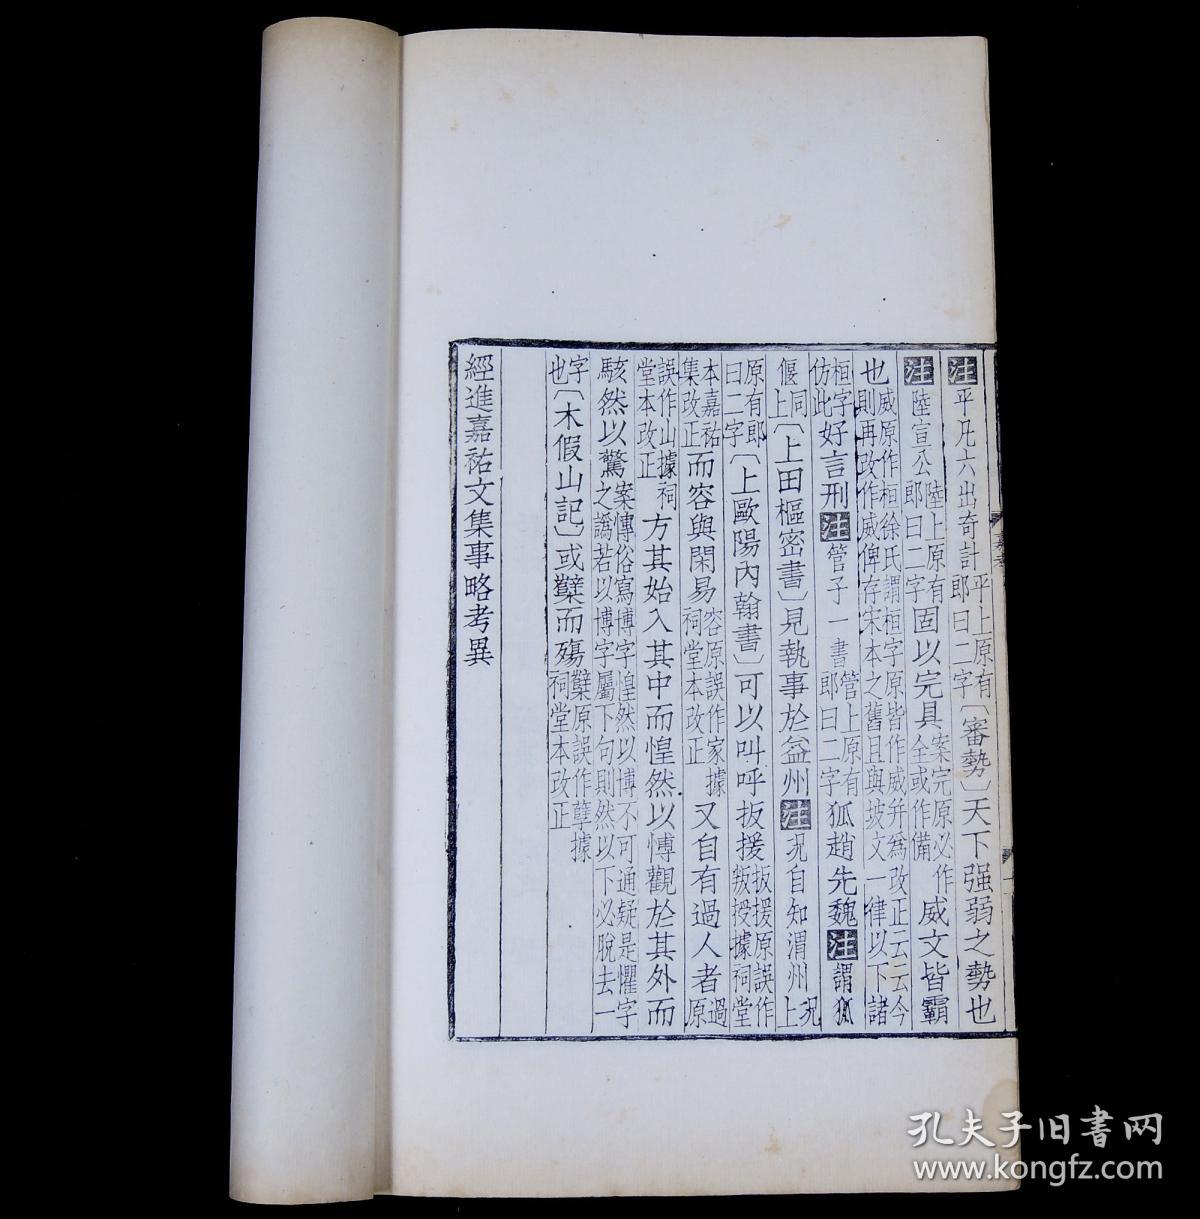 注平凡六出奇計平上原有郎曰二字〔審勢〕天下強弱之勢也
注陸宣公陸上原有郎曰二字固以完具案完原必作全或作備威文皆霸
也威原作桓徐氏謂桓字原皆作威并為改正云云今則再改作威俾存宋本之舊且與坡文一律以下諸
桓字仿此好言刑注管子一書管上原有郎曰二字狐趙先魏注謂狐
偃同上〔上田樞密書〕見執事於益州注況自知渭州況上
原有郎曰二字〔上歐陽內翰書〕可以叫呼扳援扳援原誤作叛授據祠堂
本嘉祐集改正而容與閑易容原誤作家據祠堂本改正又自有過人者過原
誤作山據祠堂本改正方其始入其中而惶然以博觀於其外而
駭然以驚案傳俗寫博字惶然以博不可通疑是懼字之譌若以博字屬下句則然以下必脫去一
字也〔木假山記〕或蘖而殤蘖原誤作孽據祠堂本改正
經進嘉祐文集事略考異
孔夫子旧書网
www.kongfz.com